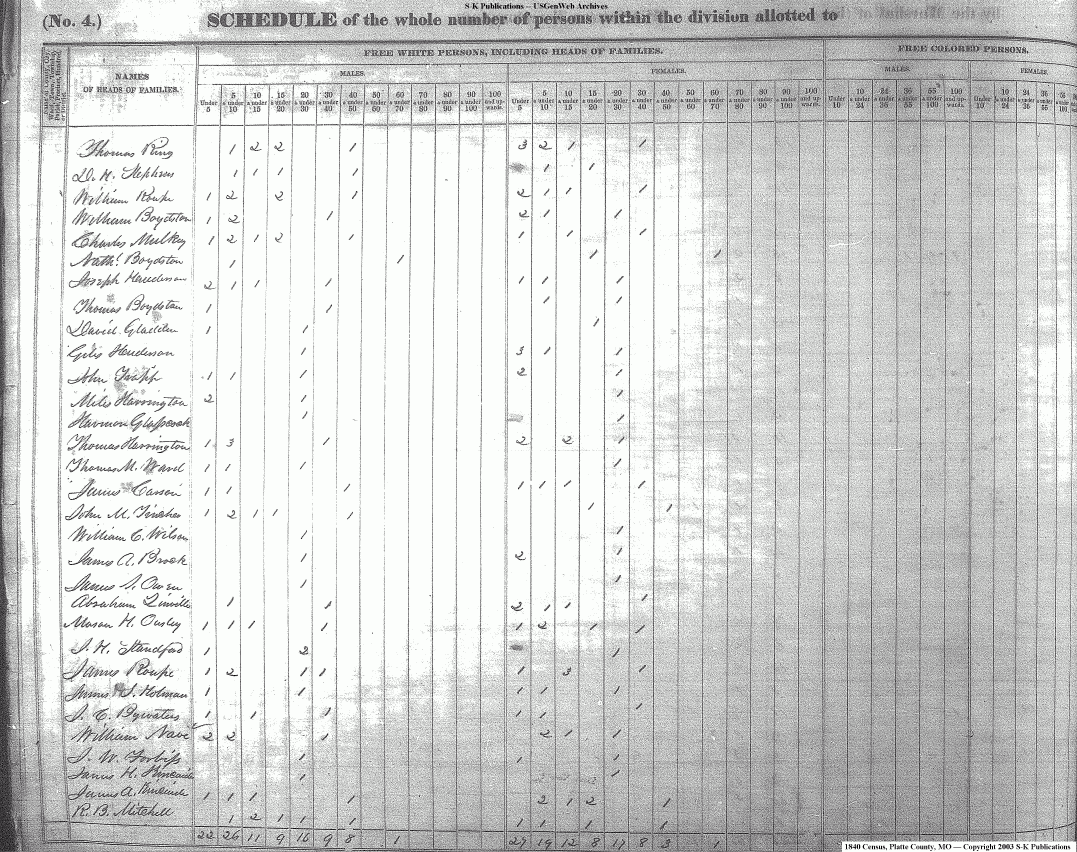 S-K Publications – USGenWeb Archives
(No. 4.) SCHEDULE of the whole number of persons within the division allotted to
FREE WHITE PERSONS, INCLUDING HEADS OF FAMILIES. FREE COLORED PERSONS.
NAMES OF HEADS OF FAMILIES. MALES. FEMALES. MALES. FEMALES.
Under 5 5 & under 10 10 & under 15 15 & under 20 20 & under 30 30 & under 40 40 & under 50 50 & under 60 60 & under 70 70 & under 80 80 & under 90 90 & under 100 100 and upwards. Under 5 5 & under 10 10 & under 15 15 & under 20 20 & under 30 30 & under 40 40 & under 50 50 & under 60 60 & under 70 70 & under 80 80 & under 90 90 & under 100 100 and upwards. Under 10 10 & under 24 24 & under 36 36 & under 55 55 & under 100 100 and upwards. Under 10 10 & under 24 24 & under 36 36 & under 55
Thomas King 1 2 2 1 3 2 1 1
D. H. Stephens 1 1 1 1 1 1
William Roupe 1 2 2 1 2 1 1 1
William Boydston 1 2 1 2 1 1
Charles Mulkey 1 2 1 2 1 1 1 1 1
Nathl. Boydston 1 1 1 1
Joseph Henderson 2 1 1 1 1 1 1
Thomas Boydston 1 1 1 1
David Gladden 1 1 1
Giles Henderson 1 3 1 1
John Trapp 1 1 1 2 1
Miles Harrington 2 1 1
Harmon Glasscock 1 1
Thomas Harrington 1 3 1 2 2 1
Thomas M. Ward 1 1 1 1
James Carson 1 1 1 1 1 1 1
John M. Fincher 1 2 1 1 1 1 1
William C. Wilson 1 1
James A. Brook 1 2 1
James S. Owen 1 1
Abraham Linville 1 1 2 1 1 1
Mason H. Ousley 1 1 1 1 1 2 1 1
J. H. Standford 1 2 1
James Roupe 1 2 1 1 1 3 1
James S. Holman 1 1 1 1 1
J. C. Bywaters 1 1 1 1 1 1
William Nave 2 2 1 2 1 1
J. W. Forbiss 1 1 1
James H. Kincaide 1 1
James A. Kincaide 1 1 1 1 2 1 2 1
R. B. Mitchell 1 2 1 1 1 1 1 1 1
22 26 11 9 16 9 8 1 27 19 12 8 17 8 3 1
1840 Census, Platte County, MO — Copyright 2003 S-K Publications